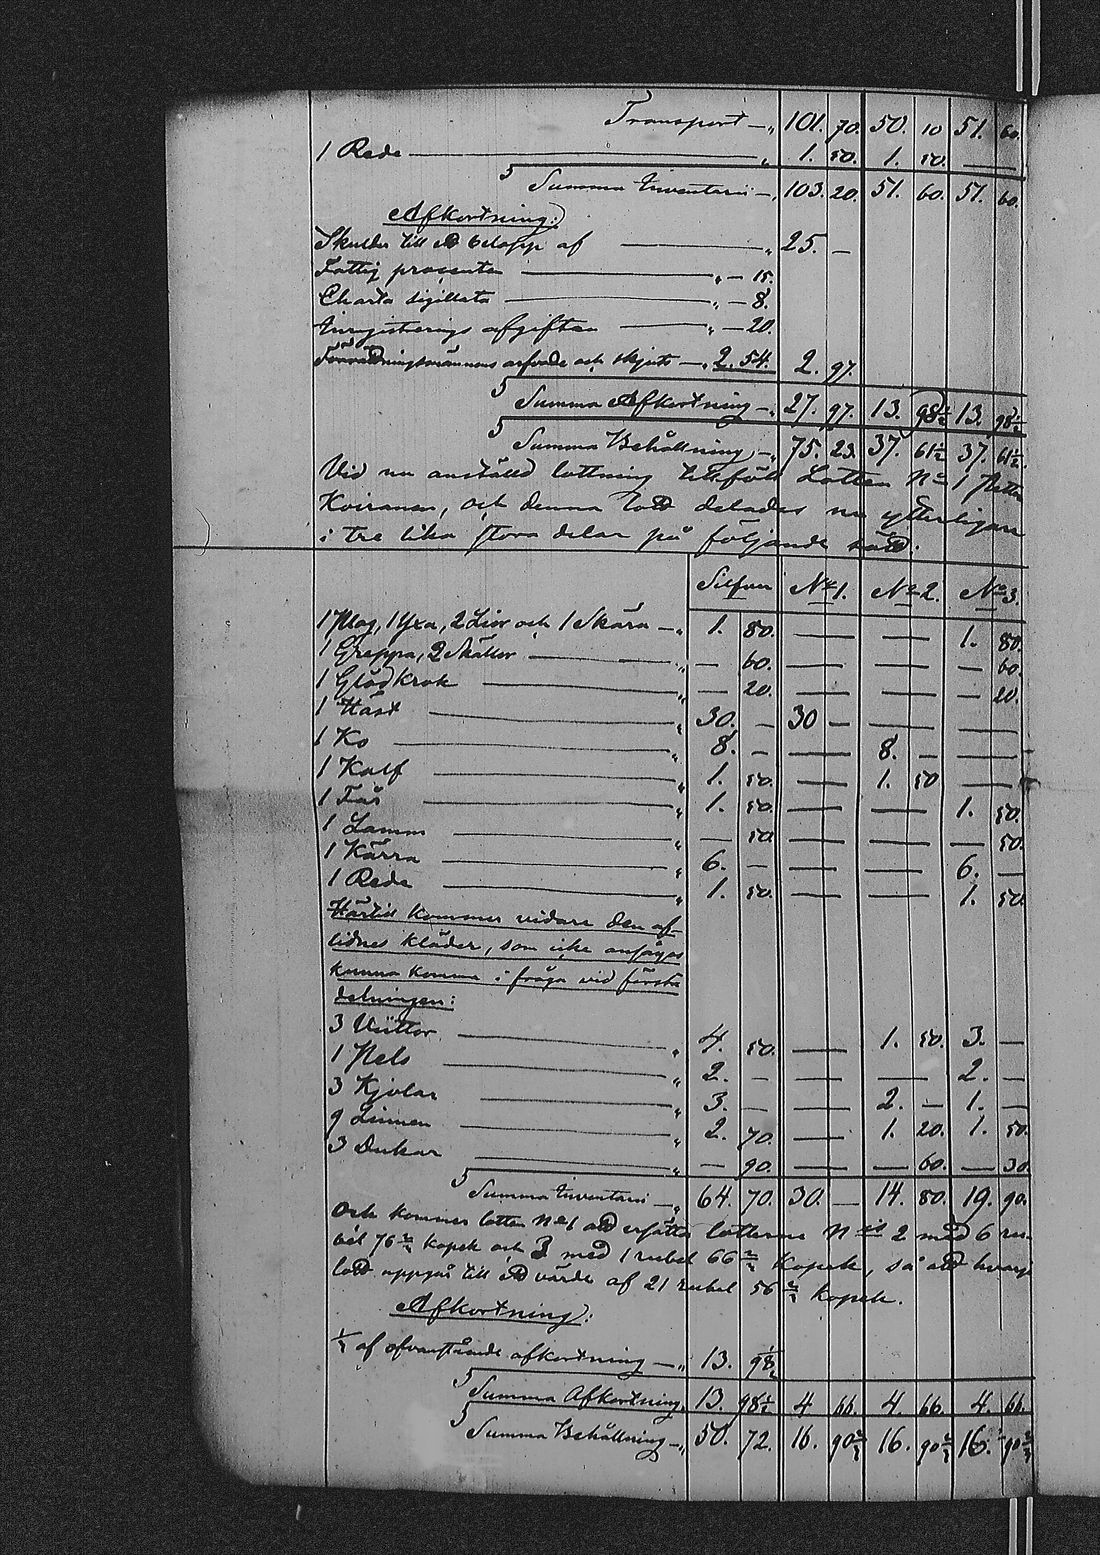 Transport — „ 101. 70. 50. 10 51. 60.
1 Rede — „ 1. 50. 1. 50. —
Summa Inventarii — „ 103. 20. 51. 60. 51. 60.
Afkortning:
Skulder till ett belopp af — „ 25. —
Fattig procenten — „ — 15.
Charta sigillata — „ — 8.
Inregistrerings afgiften — „ — 20.
Förrättningsmännens arfvode och skjuts — „ 2. 54. 2. 97.
Summa Afkortning — „ 27. 97. 13. 98½ 13. 98½
Summa Behållning — „ 75. 23. 37. 61½ 37. 61½.
Vid nu anställd lottning tillföll Lotten No 1 Petter
Koiranen, och denna lott delades nu ytterligare
i tre lika stora delar på följande sätt:
Silfver No 1. No 2. No 3.
1 Plog, 1 Yxa, 2 Liar och 1 Skära — „ 1. 80. — — 1. 80.
1 Greppa, 2 Skällor — „ — 60. — — — 60.
1 Glödkrok — „ — 20. — — — 20.
1 Häst — „ 30. — 30 — — —
1 Ko — „ 8. — — 8. — —
1 Kalf — „ 1. 50. — 1. 50 —
1 Får — „ 1. 50. — — 1. 50.
1 Lamm — „ — 50. — — — 50.
1 Kärra — „ 6. — — — 6. —
1 Rede — „ 1. 50. — — 1. 50.
Härtill kommer vidare den af-
lidnes kläder, som icke ansågos
kunna komma i fråga vid första
delningen:
3 — „ 4. 50. — 1. 50. 3. —
1 Pels — „ 2. — — — 2. —
3 Kjolar — „ 3. — — 2. — 1. —
9 Linnen — „ 2. 70. — 1. 20. 1. 50.
3 Dukar — „ — 90. — — 60. — 30.
Summa Inventarii — „ 64. 70. 30. — 14. 80. 19. 90.
Och kommer lotten No 1 att ersätta lotterne No 2 med 6 ru-
bel 76 ⅔ kopek och 3 med 1 rubel 66 ⅔ kopek, så att hvarje
lott uppgår till ett värde af 21 rubel 56 ⅔ kopek.
Afkortning:
½ af ofvanstående afkortning — „ 13. 98½
Summa Afkortning „ 13. 98½ 4 66. 4. 66. 4. 66.
Summa Behållning — „ 50. 72. 16. 90⅔ 16. 90⅔ 16. 90⅔